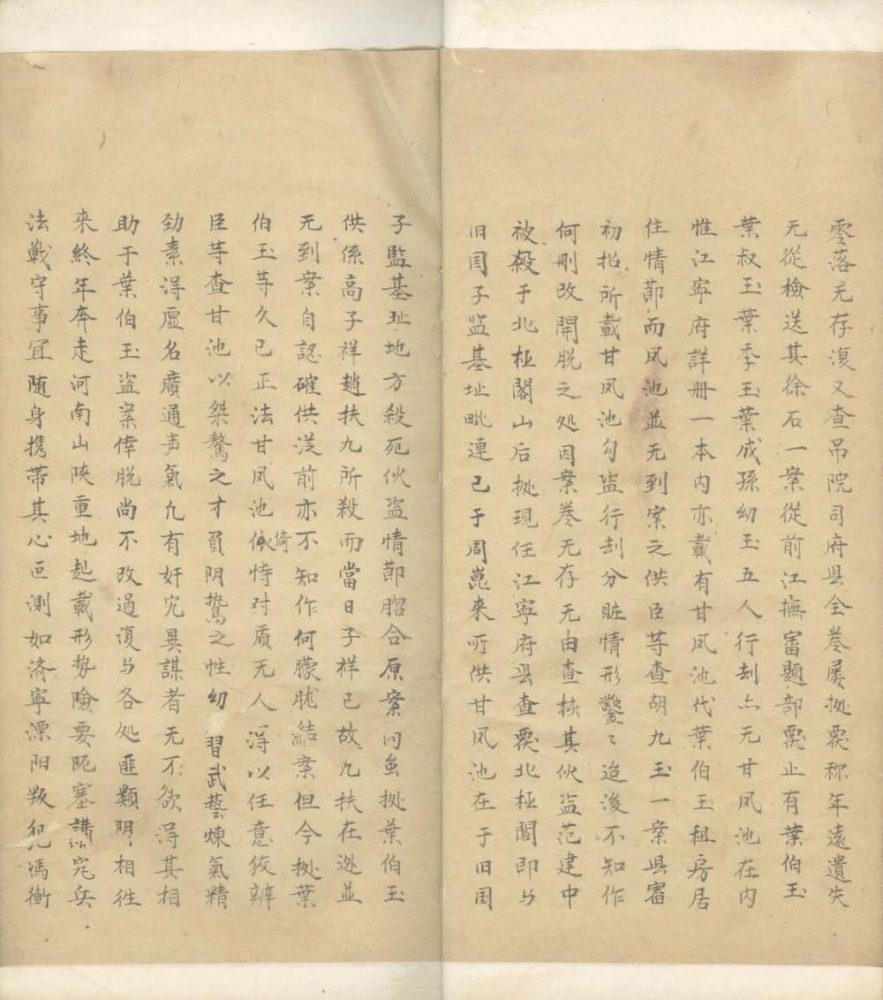 零落无存復又查吊院司府县全卷屡拠覆称年遠遺失
无從檢送其徐石一案從前江撫審題部覆止有葉伯玉
葉叔玉葉季玉葉成孫幼玉五人行刦亦无甘凤池在内
惟江寧府詳册一本内亦載有甘凤池代葉伯玉租房居
住情莭而凤池並无到案之供臣等查胡九玉一案县審
初招所載甘凤池勾盗行刦分賍情形鑿〻迨後不知作
何刪改開脱之処因案卷无存无由查核其伙盗范建中
被殺于北极閣山后拠現任江寧府县查覆北极閣即与
旧国子监基址毗連已于周崑来所供甘凤池在于旧国
子監基址地方殺死伙盗情莭脗合原案内虽拠葉伯玉
供係高子祥趙扶九所殺而當日子祥已故九扶在逃並
无到案自認確供從前亦不知作何朦朧結案但今拠葉
伯玉等久已正法甘凤池倚恃对质无人得以任意狡辨
臣等查甘池以桀驁之才負阴鷙之性幼習武藝煉氣精
劲素得虛名廣通声氣凢有奸宄異謀者无不欲得其相
助于葉伯玉盗案倖脱尚不改過復与各処匪類明相徃
來終年奔走河南山陝重地起載形势險要阨塞講論宄兵
法戰守事宜随身携带其心叵測如济寧溧阳叛犯馮衡